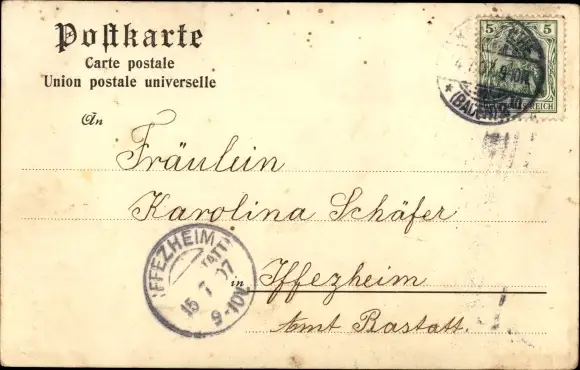 Postkarte
Carte postale
Union postale universelle
5 5
9-10N
(BADEN)
REICH
An
Fräulein
Karolina Schäfer
in Iffezheim
Amt Rastatt.
IFFEZHEIM
15 7 07
9-10V